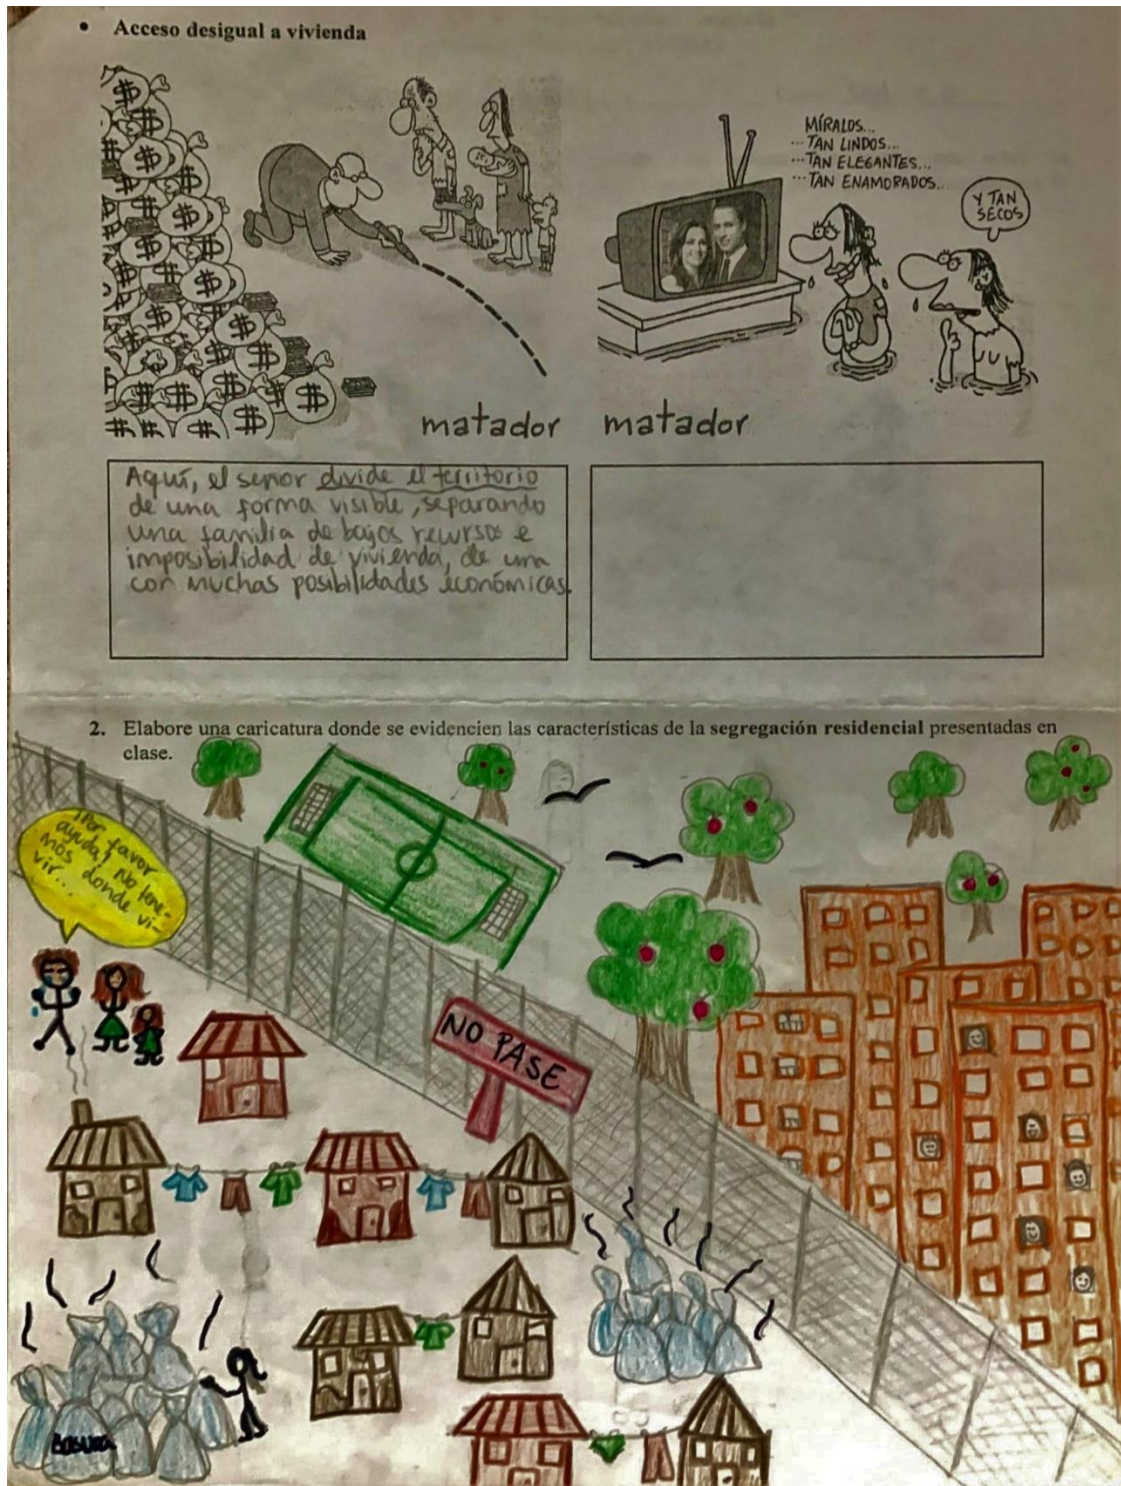 • Acceso desigual a vivienda
MÍRALOS...
...TAN LINDOS...
...TAN ELEGANTES...
...TAN ENAMORADOS...
Y TAN
SECOS
matador
matador
Aquí, el señor divide el territorio
de una forma visible, separando
una familia de bajos recursos e
imposibilidad de vivienda, de una
con muchas posibilidades económicas.
2. Elabore una caricatura donde se evidencien las características de la segregación residencial presentadas en
clase.
¡Por favor
ayuda! No tene-
mos donde vi-
vir...
NO PASE
BASURA